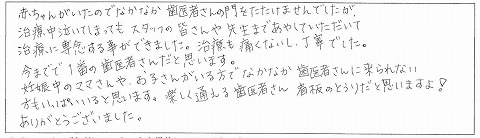 赤ちゃんがいたのでなかなか歯医者さんの門をたたけませんでしたが、
治療中泣いてしまっても スタッフの皆さんや先生まであやしていただいて
治療に専念する事ができました。治療も痛くないし、丁寧でした。
今までで1番の歯医者さんだと思います。
妊娠中のママさんや、お子さんがいる方でなかなか歯医者さんに来られない
方もいっぱいいると思います。楽しく通える歯医者さん 看板のとうりだと思いますよ!
ありがとうございました。